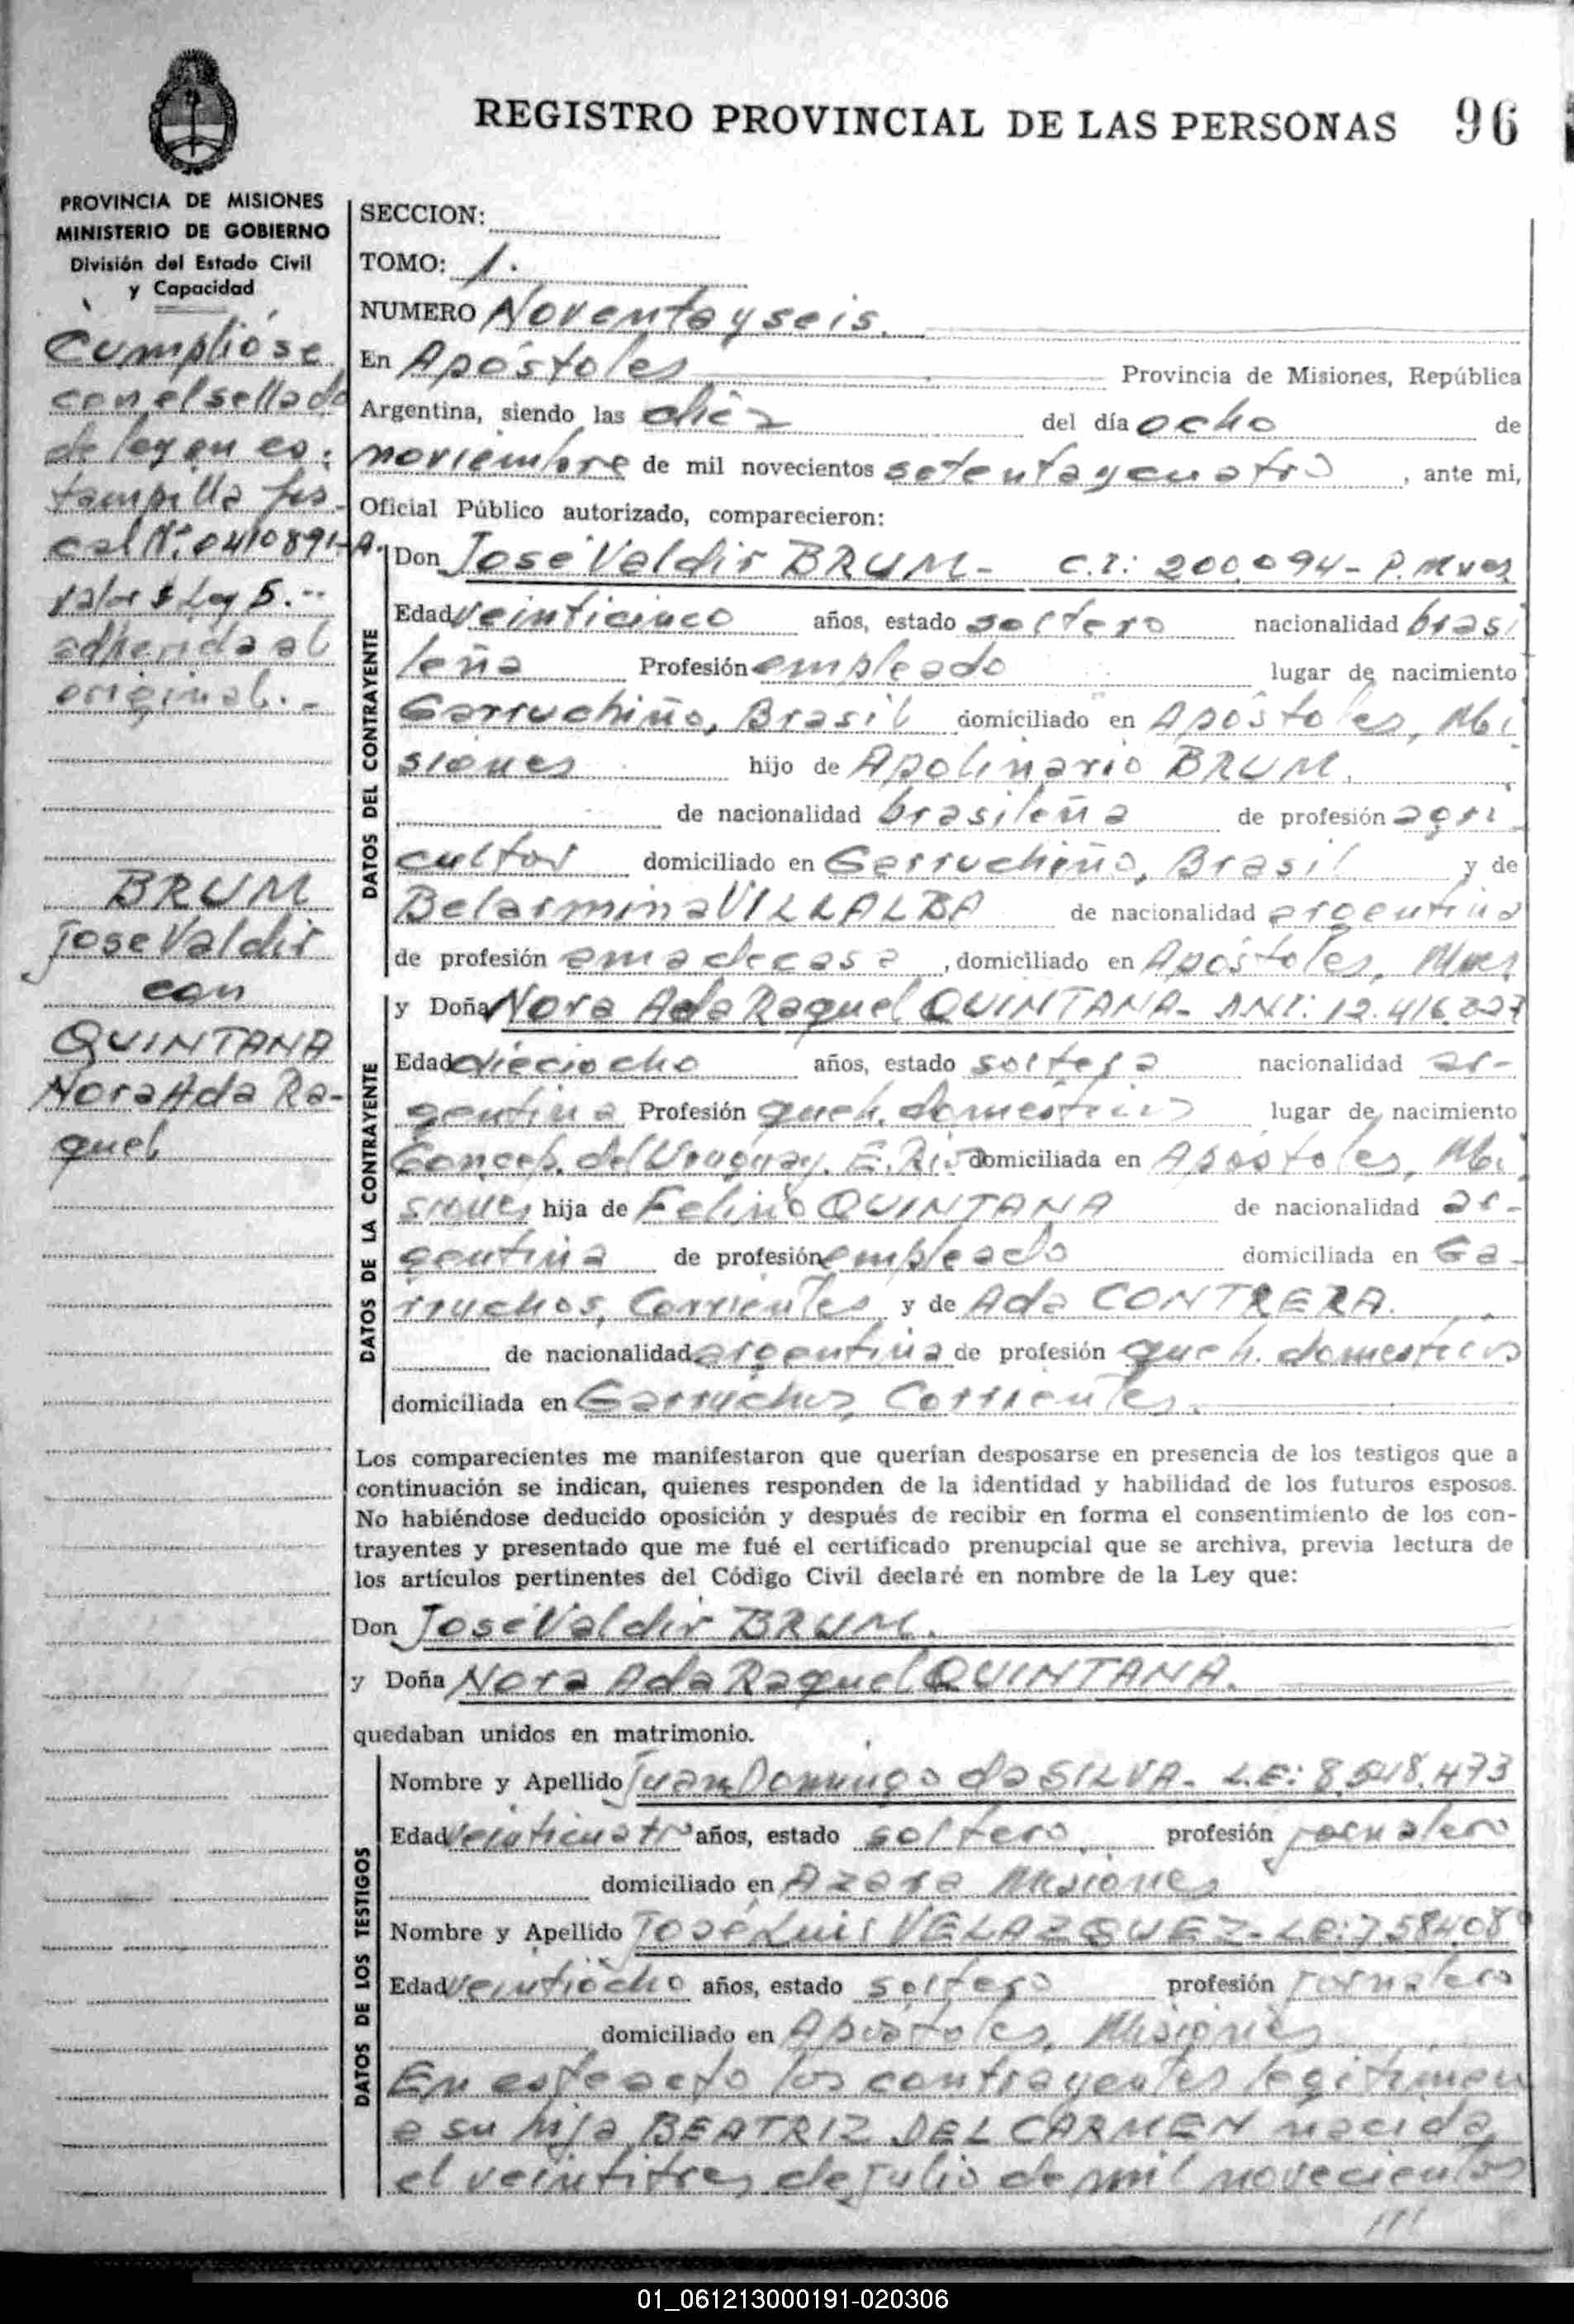 REGISTRO PROVINCIAL DE LAS PERSONAS 96
PROVINCIA DE MISIONES
MINISTERIO DE GOBIERNO
División del Estado Civil
y Capacidad
Cumplióse
con el sellado
de ley en es-
tampilla fis-
cal Nº 0410891-A.
valor $ Ley 5.--
adherida al
original.-
BRUM
José Valdir
con
QUINTANA
Nora Ada Ra-
quel
SECCION:
TOMO: 1.
NUMERO Noventa y seis.
En Apóstoles Provincia de Misiones, República
Argentina, siendo las diez del día ocho de
noviembre de mil novecientos setenta y cuatro, ante mi,
Oficial Público autorizado, comparecieron:
DATOS DEL CONTRAYENTE
Don José Valdir BRUM- C.I: 200.094- P. Mnes
Edad veinticinco años, estado soltero nacionalidad brasi
leña Profesión empleado lugar de nacimiento
Garruchiño, Brasil domiciliado en Apóstoles, Mi
siones hijo de Apolinario BRUM.
de nacionalidad brasileña de profesión agri
cultor domiciliado en Garruchiño, Brasil y de
Belarmina VILLALBA de nacionalidad argentina
de profesión ama de casa, domiciliado en Apóstoles, Mnes
DATOS DE LA CONTRAYENTE
y Doña Nora Ada Raquel QUINTANA- DNI: 12.416.
Edad dieciocho años, estado soltera nacionalidad ar-
gentina Profesión queh. domesticos lugar de nacimiento
Concep. del Uruguay. E. Rios domiciliada en Apóstoles, Mi
siones hija de Felino QUINTANA de nacionalidad ar-
gentina de profesión empleado domiciliada en Ga-
rruchos, Corrientes y de Ada CONTRERA.
de nacionalidad argentina de profesión queh. domesticos
domiciliada en Garruchos, Corrientes.
Los comparecientes me manifestaron que querían desposarse en presencia de los testigos que a
continuación se indican, quienes responden de la identidad y habilidad de los futuros esposos.
No habiéndose deducido oposición y después de recibir en forma el consentimiento de los con-
trayentes y presentado que me fué el certificado prenupcial que se archiva, previa lectura de
los artículos pertinentes del Código Civil declaré en nombre de la Ley que:
Don José Valdir BRUM.
y Doña Nora Ada Raquel QUINTANA.
quedaban unidos en matrimonio.
DATOS DE LOS TESTIGOS
Nombre y Apellido Juan Domingo da SILVA- L.E: 8.548.473
Edad veinticuatro años, estado soltero profesión jornalero
domiciliado en Azara Misiones
Nombre y Apellido José Luis VELAZQUEZ- L.E: 7.58408
Edad veintiocho años, estado soltero profesión jornalero
domiciliado en Apóstoles, Misiones
En este acto los contrayentes legitiman
a su hija BEATRIZ DEL CARMEN nacida
el veintitres de julio de mil novecientos
///
01_061213000191-020306